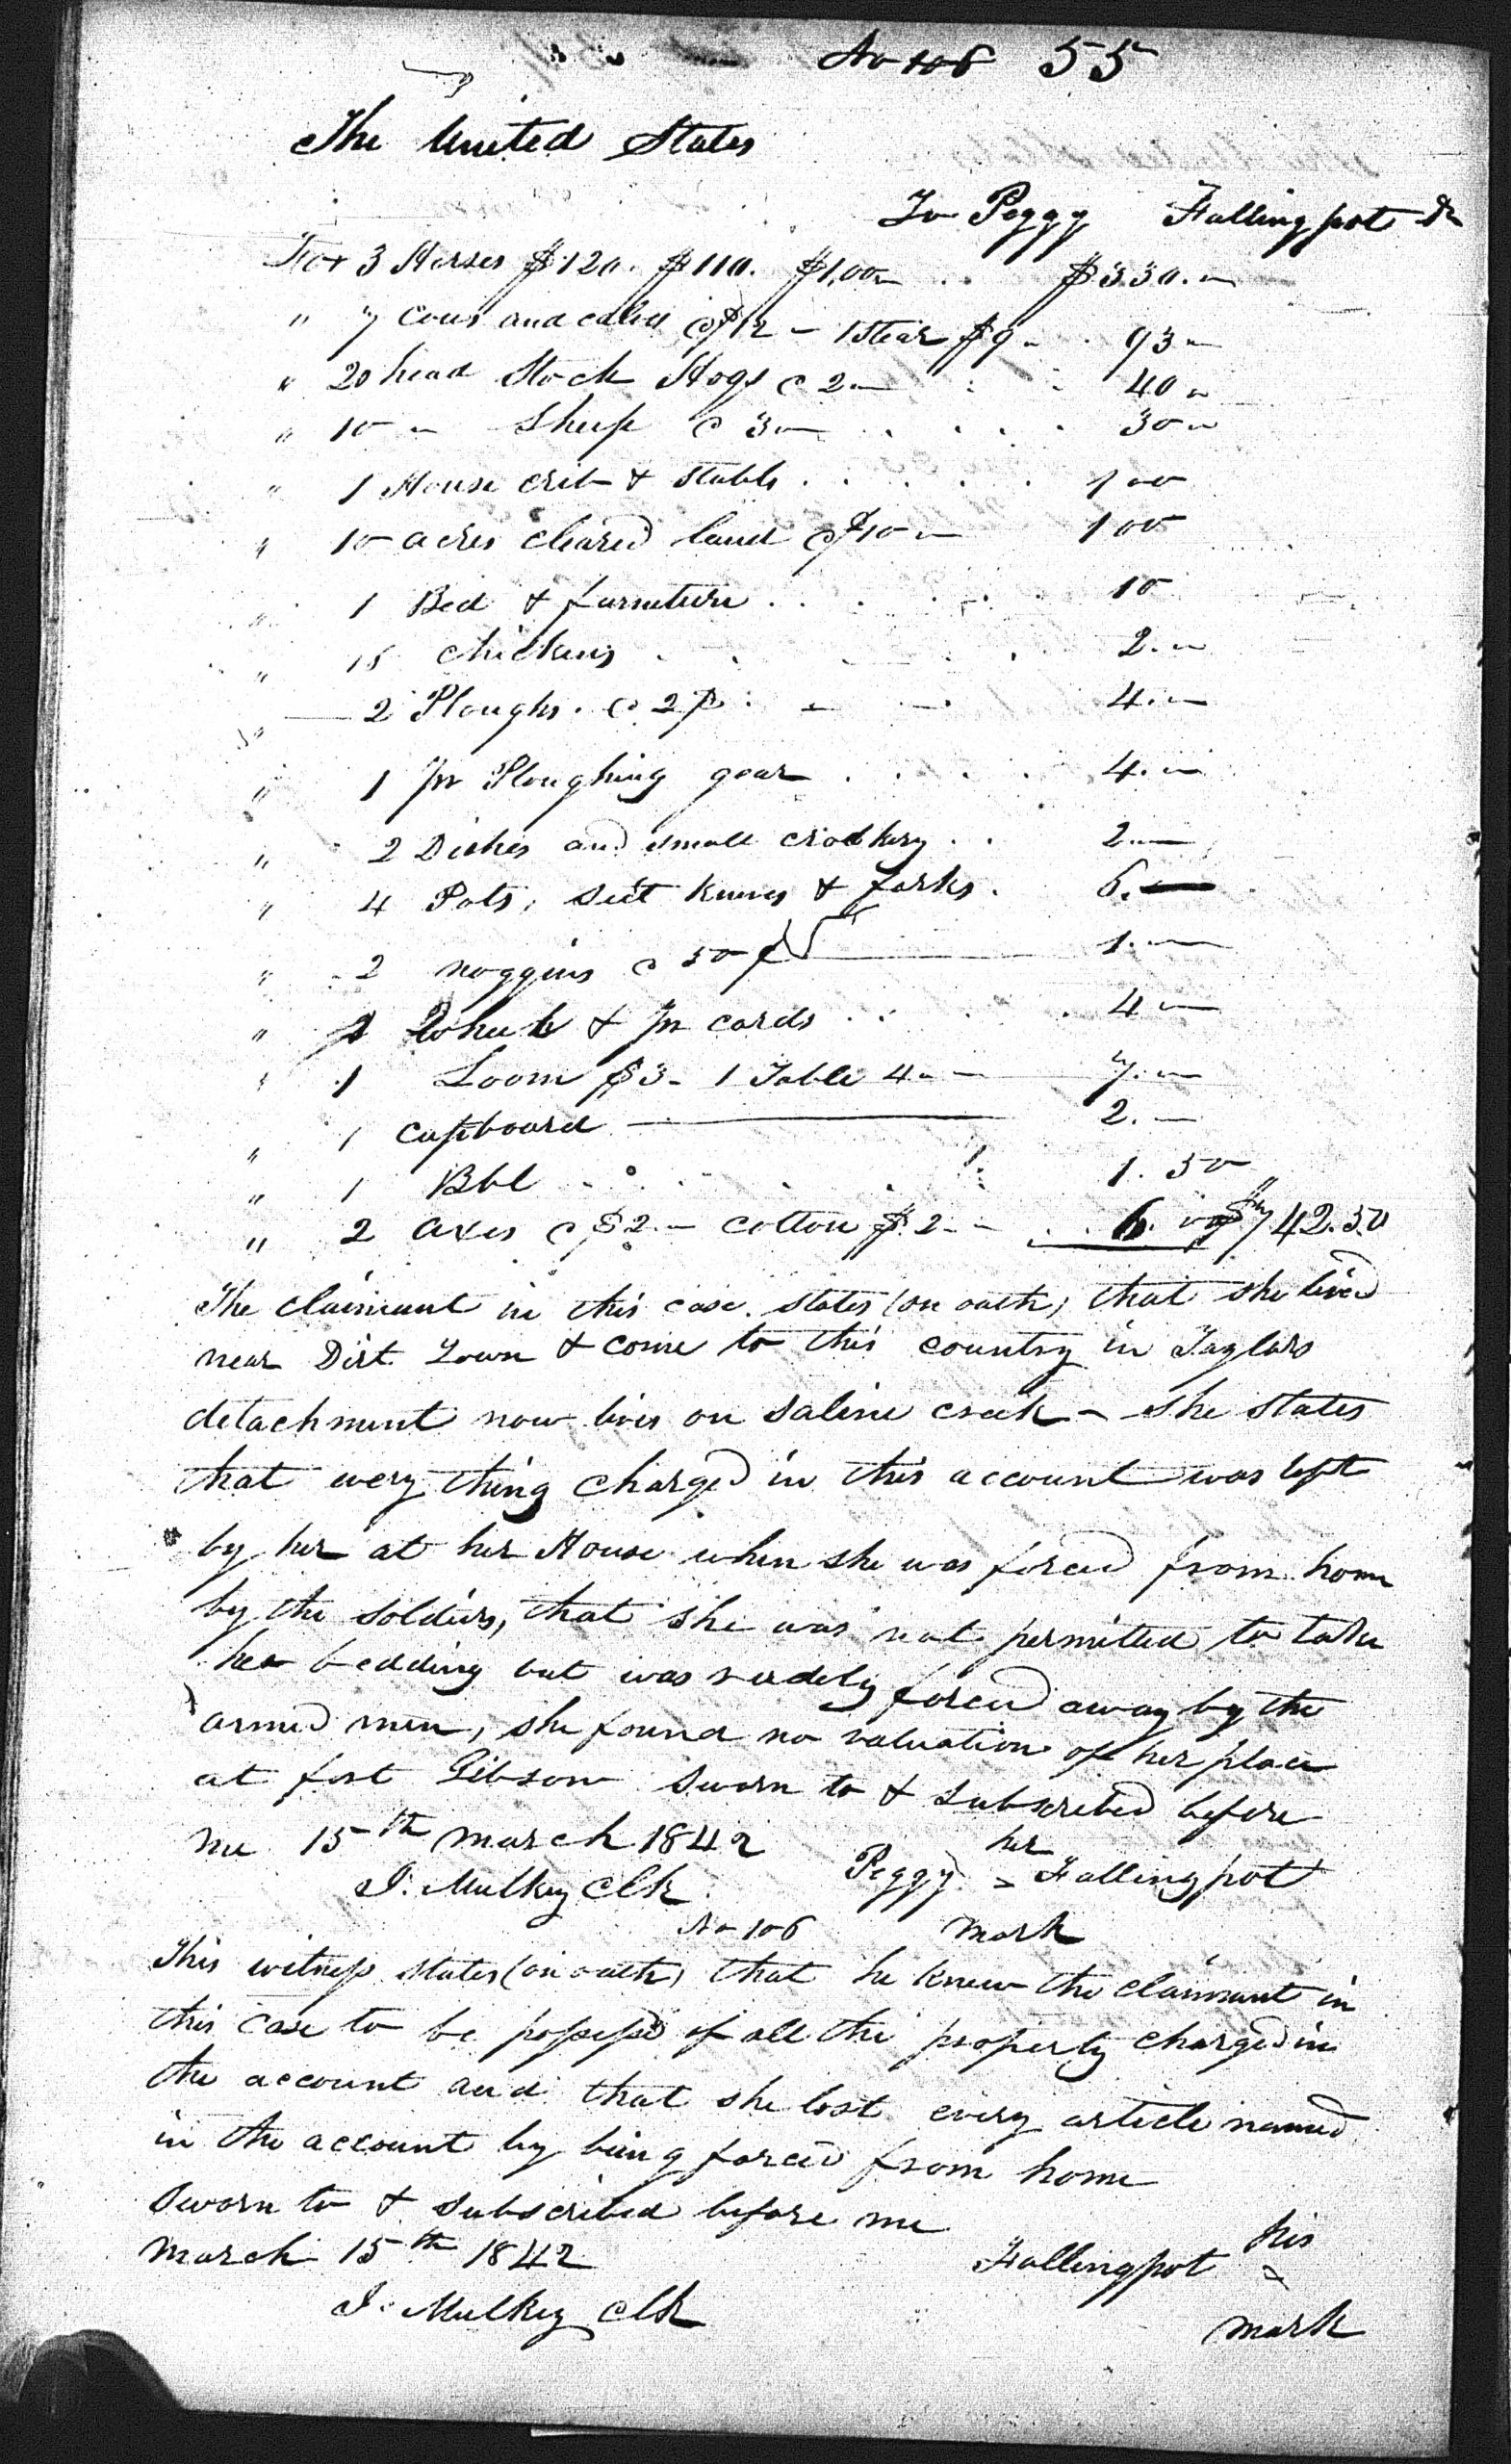 No 106 55
The United States
To Peggy Fallingpot Dr
For 3 Horses $120. $110. $1,00 .. $330.—
" 7 Cows and calves @ $12 – 1 Stear $9 – . 93 –
" 20 head Stock Hogs @ 2.— : . 40 "
" 10 " Sheep @ 3 — . . . . 30 "
" 1 House crib & Stable . . . . . 100
" 10 acres cleared land @ $10 — 100
" 1 Bed & furneture . . . . . 10
" 15 chickens . . . . . 2.—
" 2 Ploughs. @ 2$ . — . 4.—
" 1 pr Ploughing gear . . . . 4.—
" 2 Dishes and small crockery . . 2.—
" 4 Pots, sett knives & forks . 6.—
" 2 noggins @ 50 ¢ — 1.—
" 2 Wheels & pr cards . . . . 4 —
" 1 Loom $3 – 1 Table 4. — 7.—
" 1 Cupboard — 2.—
" 1 Bbl . . . . . 1.50
" 2 axes @ $2.– cotton $2 – . . 6. $742.50
The claimant in this case. states (on oath) that she lived
near Dirt Town & come to this country in Taylors
detachment now lives on Saline creek – She states
that every thing charged in this account was left
by her at her House when she was forced from home
by the Soldiers, that she was not permitted to take
her bedding but was rudely forced away by the
armed men, she found no valuation of her place
at fort Gibson Sworn to & Subscribed before
me 15th march 1842 her
J. Mulkey Clk Peggy x Fallingpot
No 106 mark
This witness states (on oath) that he knew the claimant in
this case to be possessd of all the property charged in
the account and that she lost every article named
in the account by being forced from home
Sworn to & Subscribed before me
March 15th 1842 his
Fallingpot x
J. Mulkey Clk mark